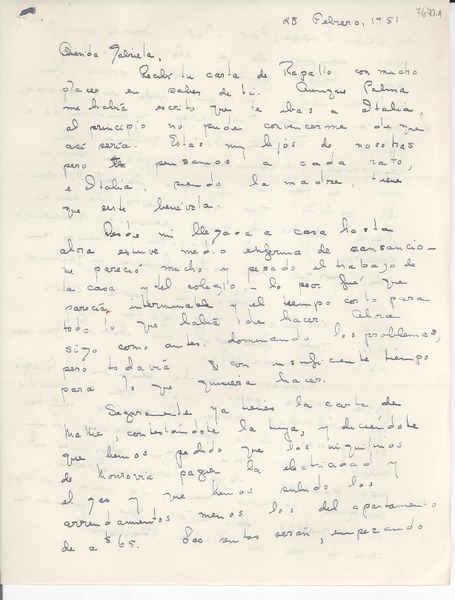 7670.1
28 Febrero, 1951
Querida Gabriela,
Recibí tu carta de Rapallo con mucho
placer en saber de ti. Aunque Palma
me había escrito que te ibas a Italia
al principio no pude convencerme de que
así sería. Estás muy lejos de nosotras
pero te pensamos a cada rato,
e Italia, siendo la madre, tiene
que serte benévola.
Desde mi llegada a casa hasta
ahora estuve medio enferma de cansancio –
me pareció mucho y pesado el trabajo de
la casa y del colegio – lo peor fué que
parecía interminable y el tiempo corto para
todo lo que había de hacer. Ahora
sigo como antes, dominando los problemas,
pero todavía con insuficiente tiempo
para lo que quisiera hacer.
Seguramente ya tienes la carta de
contestándote la tuya, y diciéndote
que hemos pedido que los inquilinos
de Monrovia paguen la electricidad y
el gas y que hemos subido los
arrendamientos menos los del apartamento
de a $65. Las rentas serán, empezando